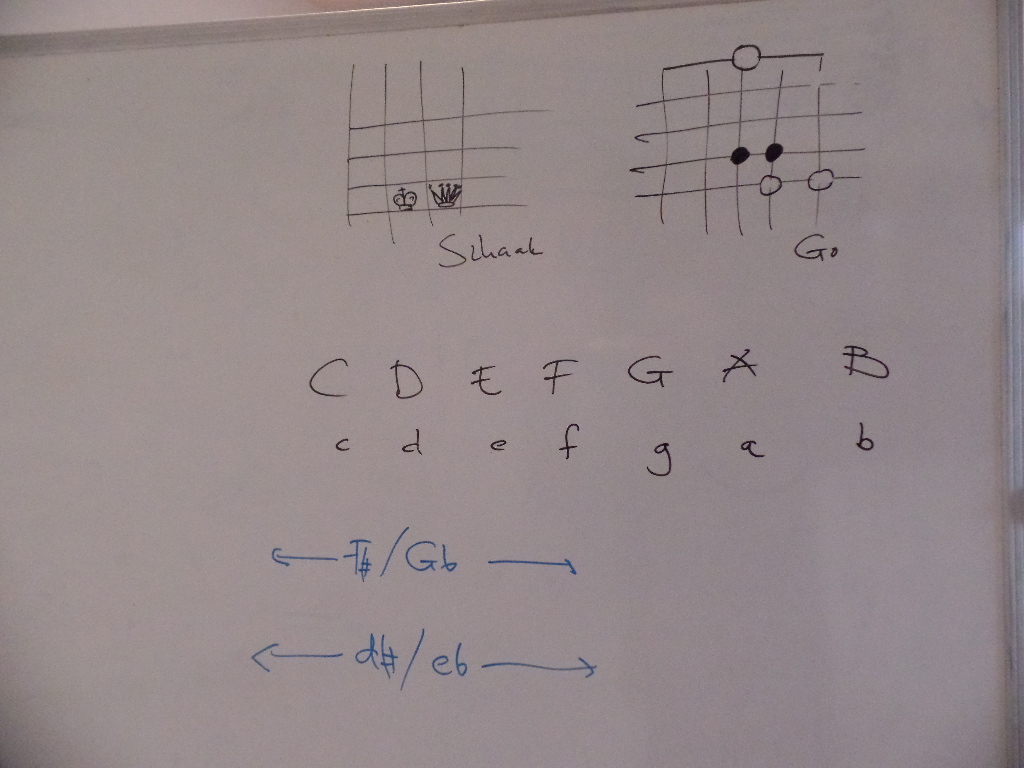 Schaak
Go
C D E F G A B
c d e f g a b
← F#/Gb →
← d#/eb →